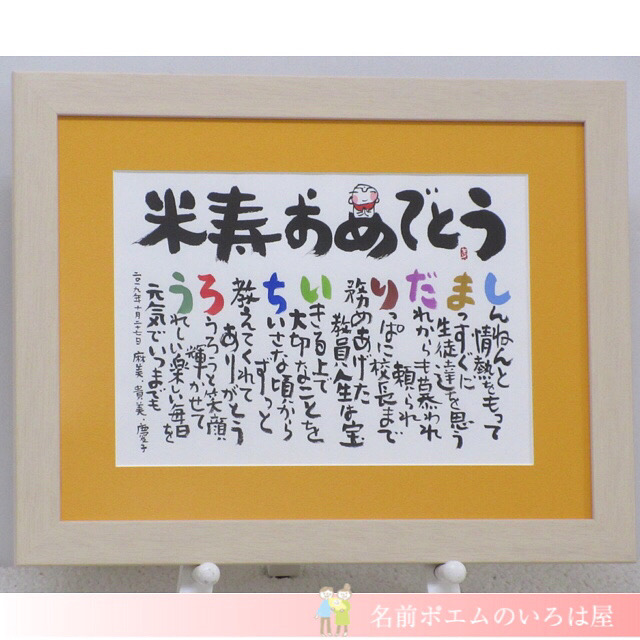 米寿おめでとう
しんねんと
情熱をもって
まっすぐに
生徒達を思う
だれからも慕われ
頼られ
りっぱに校長まで
務めあげた
教員人生は宝
いきる上で
大切なことを
ちいさな頃から
ずっと
教えてくれて
ありがとう
ろうろうと笑顔
輝かせて
うれしい楽しい毎日を
元気でいつまでも
二〇一九年十月二十七日 麻美 貴美・慶子
名前ポエムのいろは屋